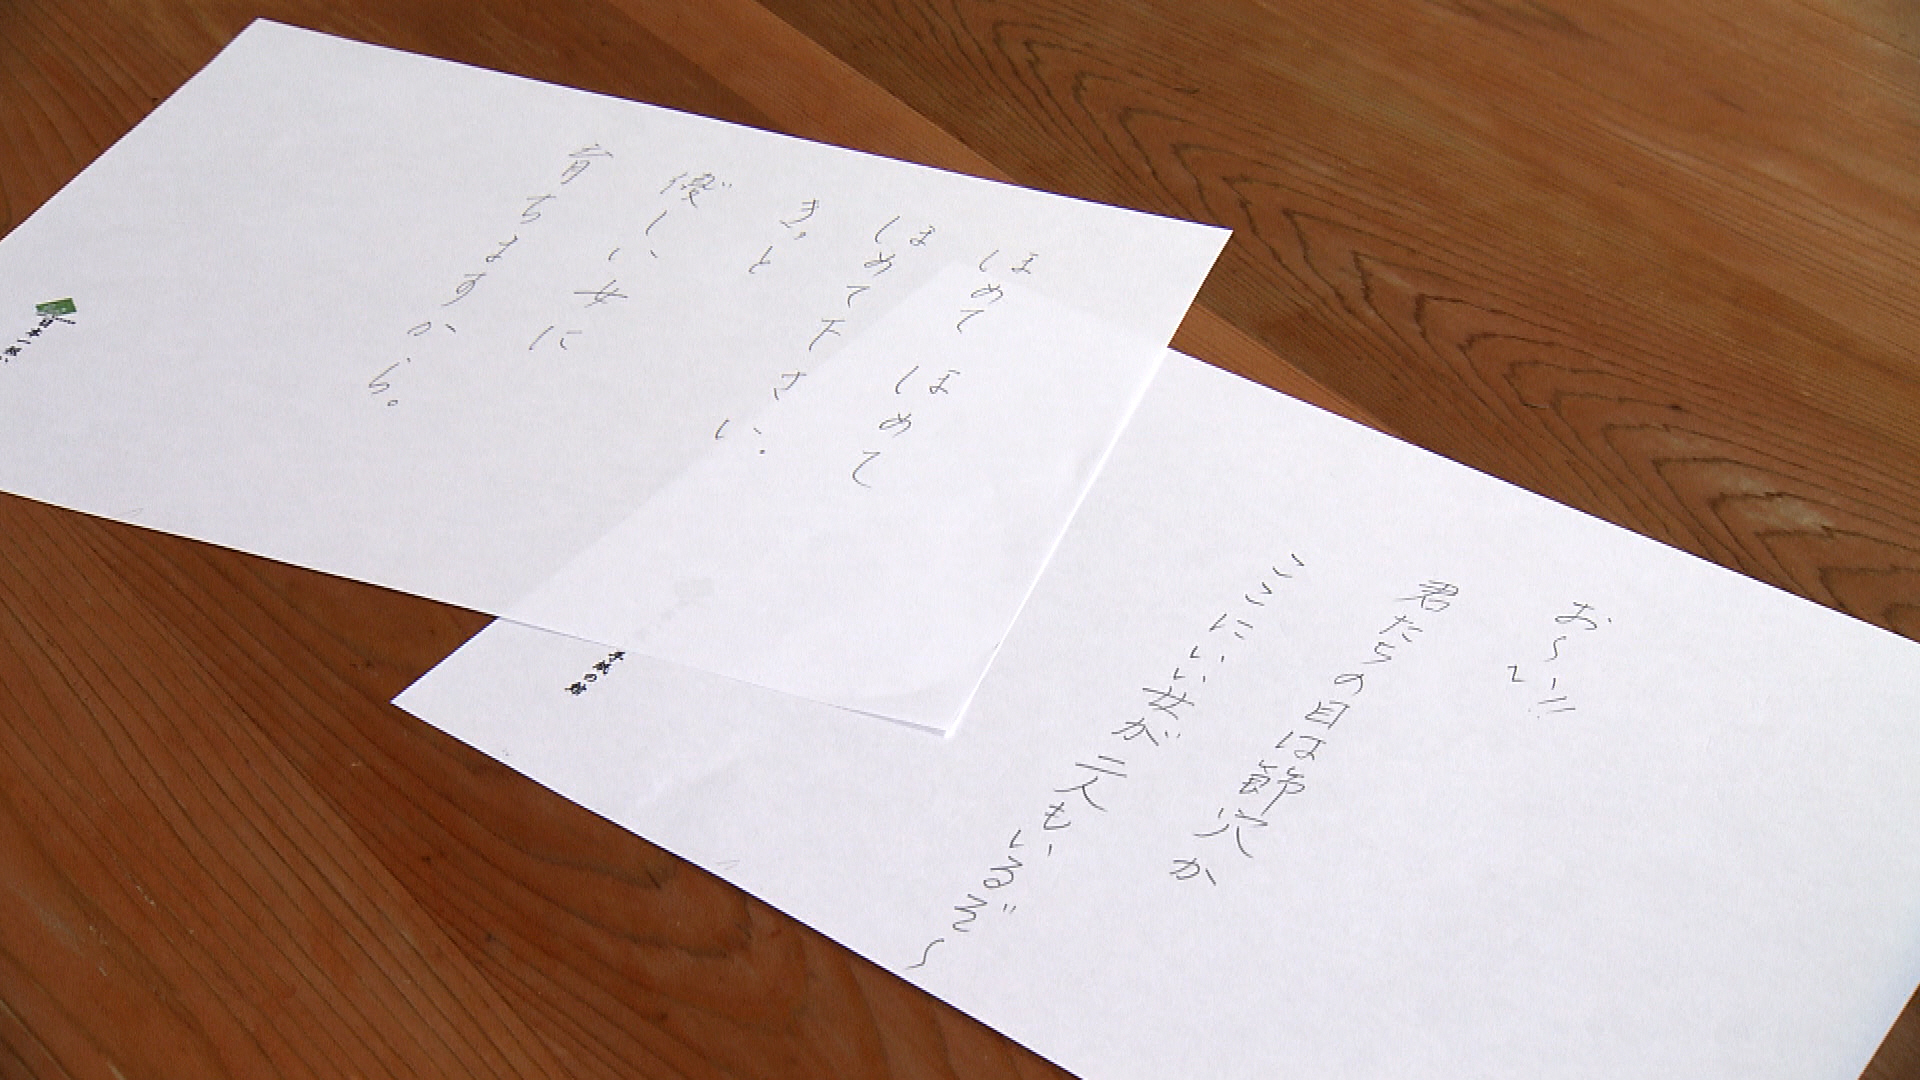 ほめて ほめて
ほめて下さい。
きっと
優しい女に
育ちますから。
お〜い!!
君たちの目は節穴か
ここにいい女が二人もいるぞ〜